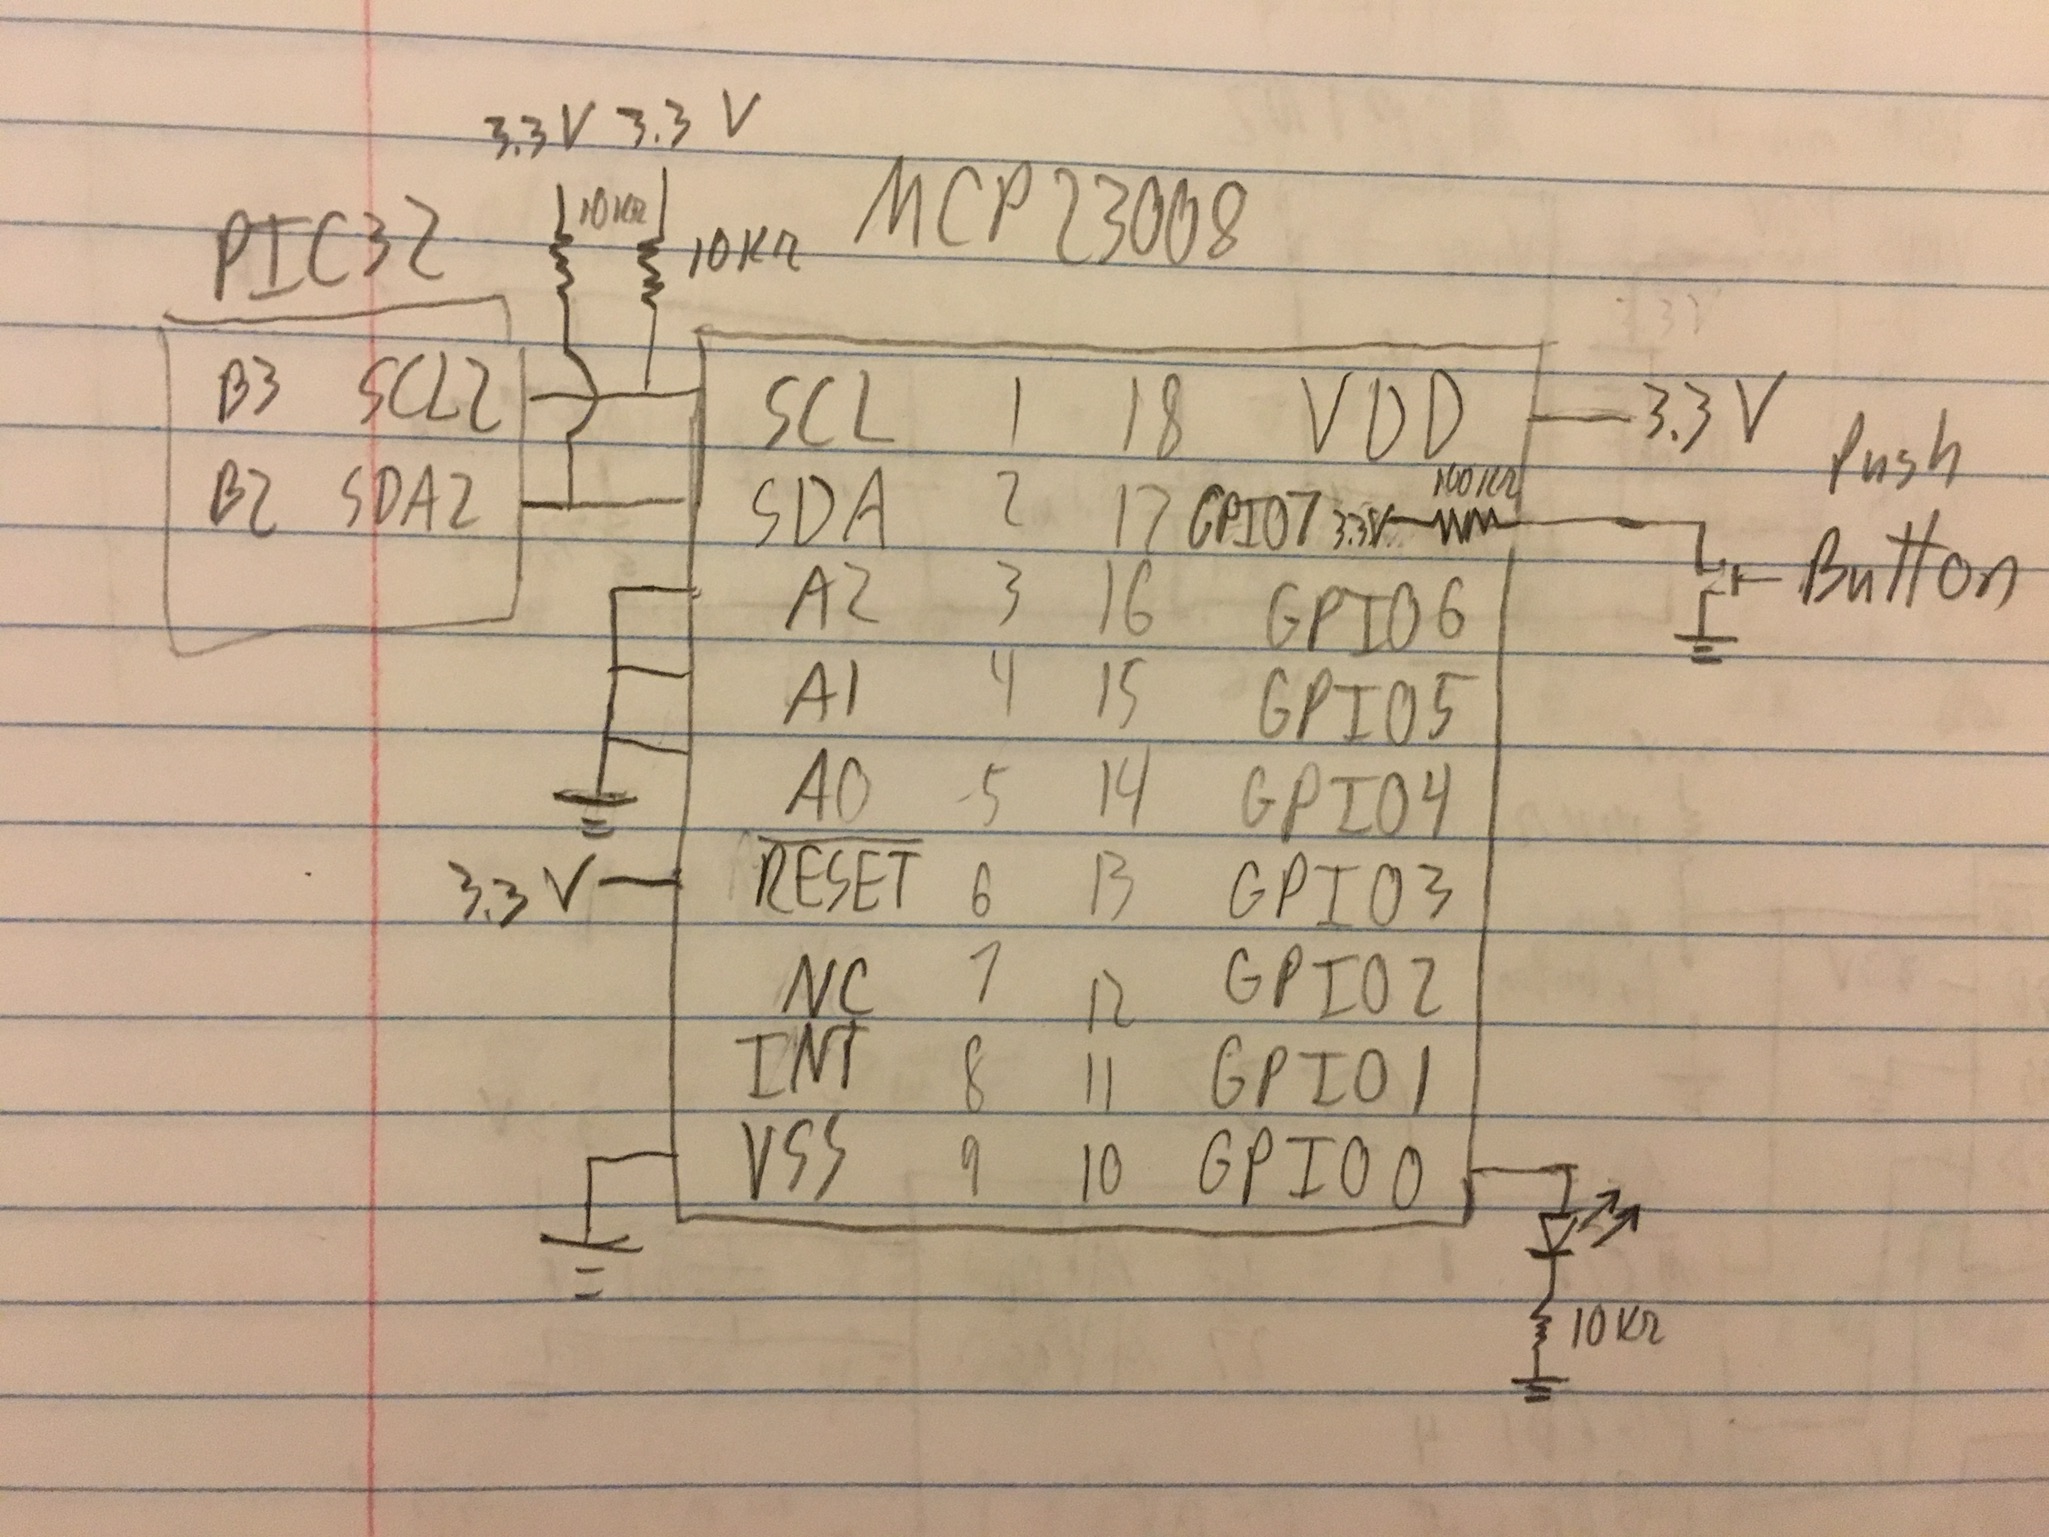 3.3V 3.3 V
10KΩ
10KΩ
PIC32
MCP23008
B3 SCL2
B2 SDA2
SCL 1 18 VDD
3.3V
SDA 2 17 GPIO7 3.3V
100KΩ
Push
Button
A2 3 16 GPIO6
A1 4 15 GPIO5
A0 5 14 GPIO4
3.3V
RESET 6 13 GPIO3
NC 7 12 GPIO2
INT 8 11 GPIO1
VSS 9 10 GPIO0
10KΩ